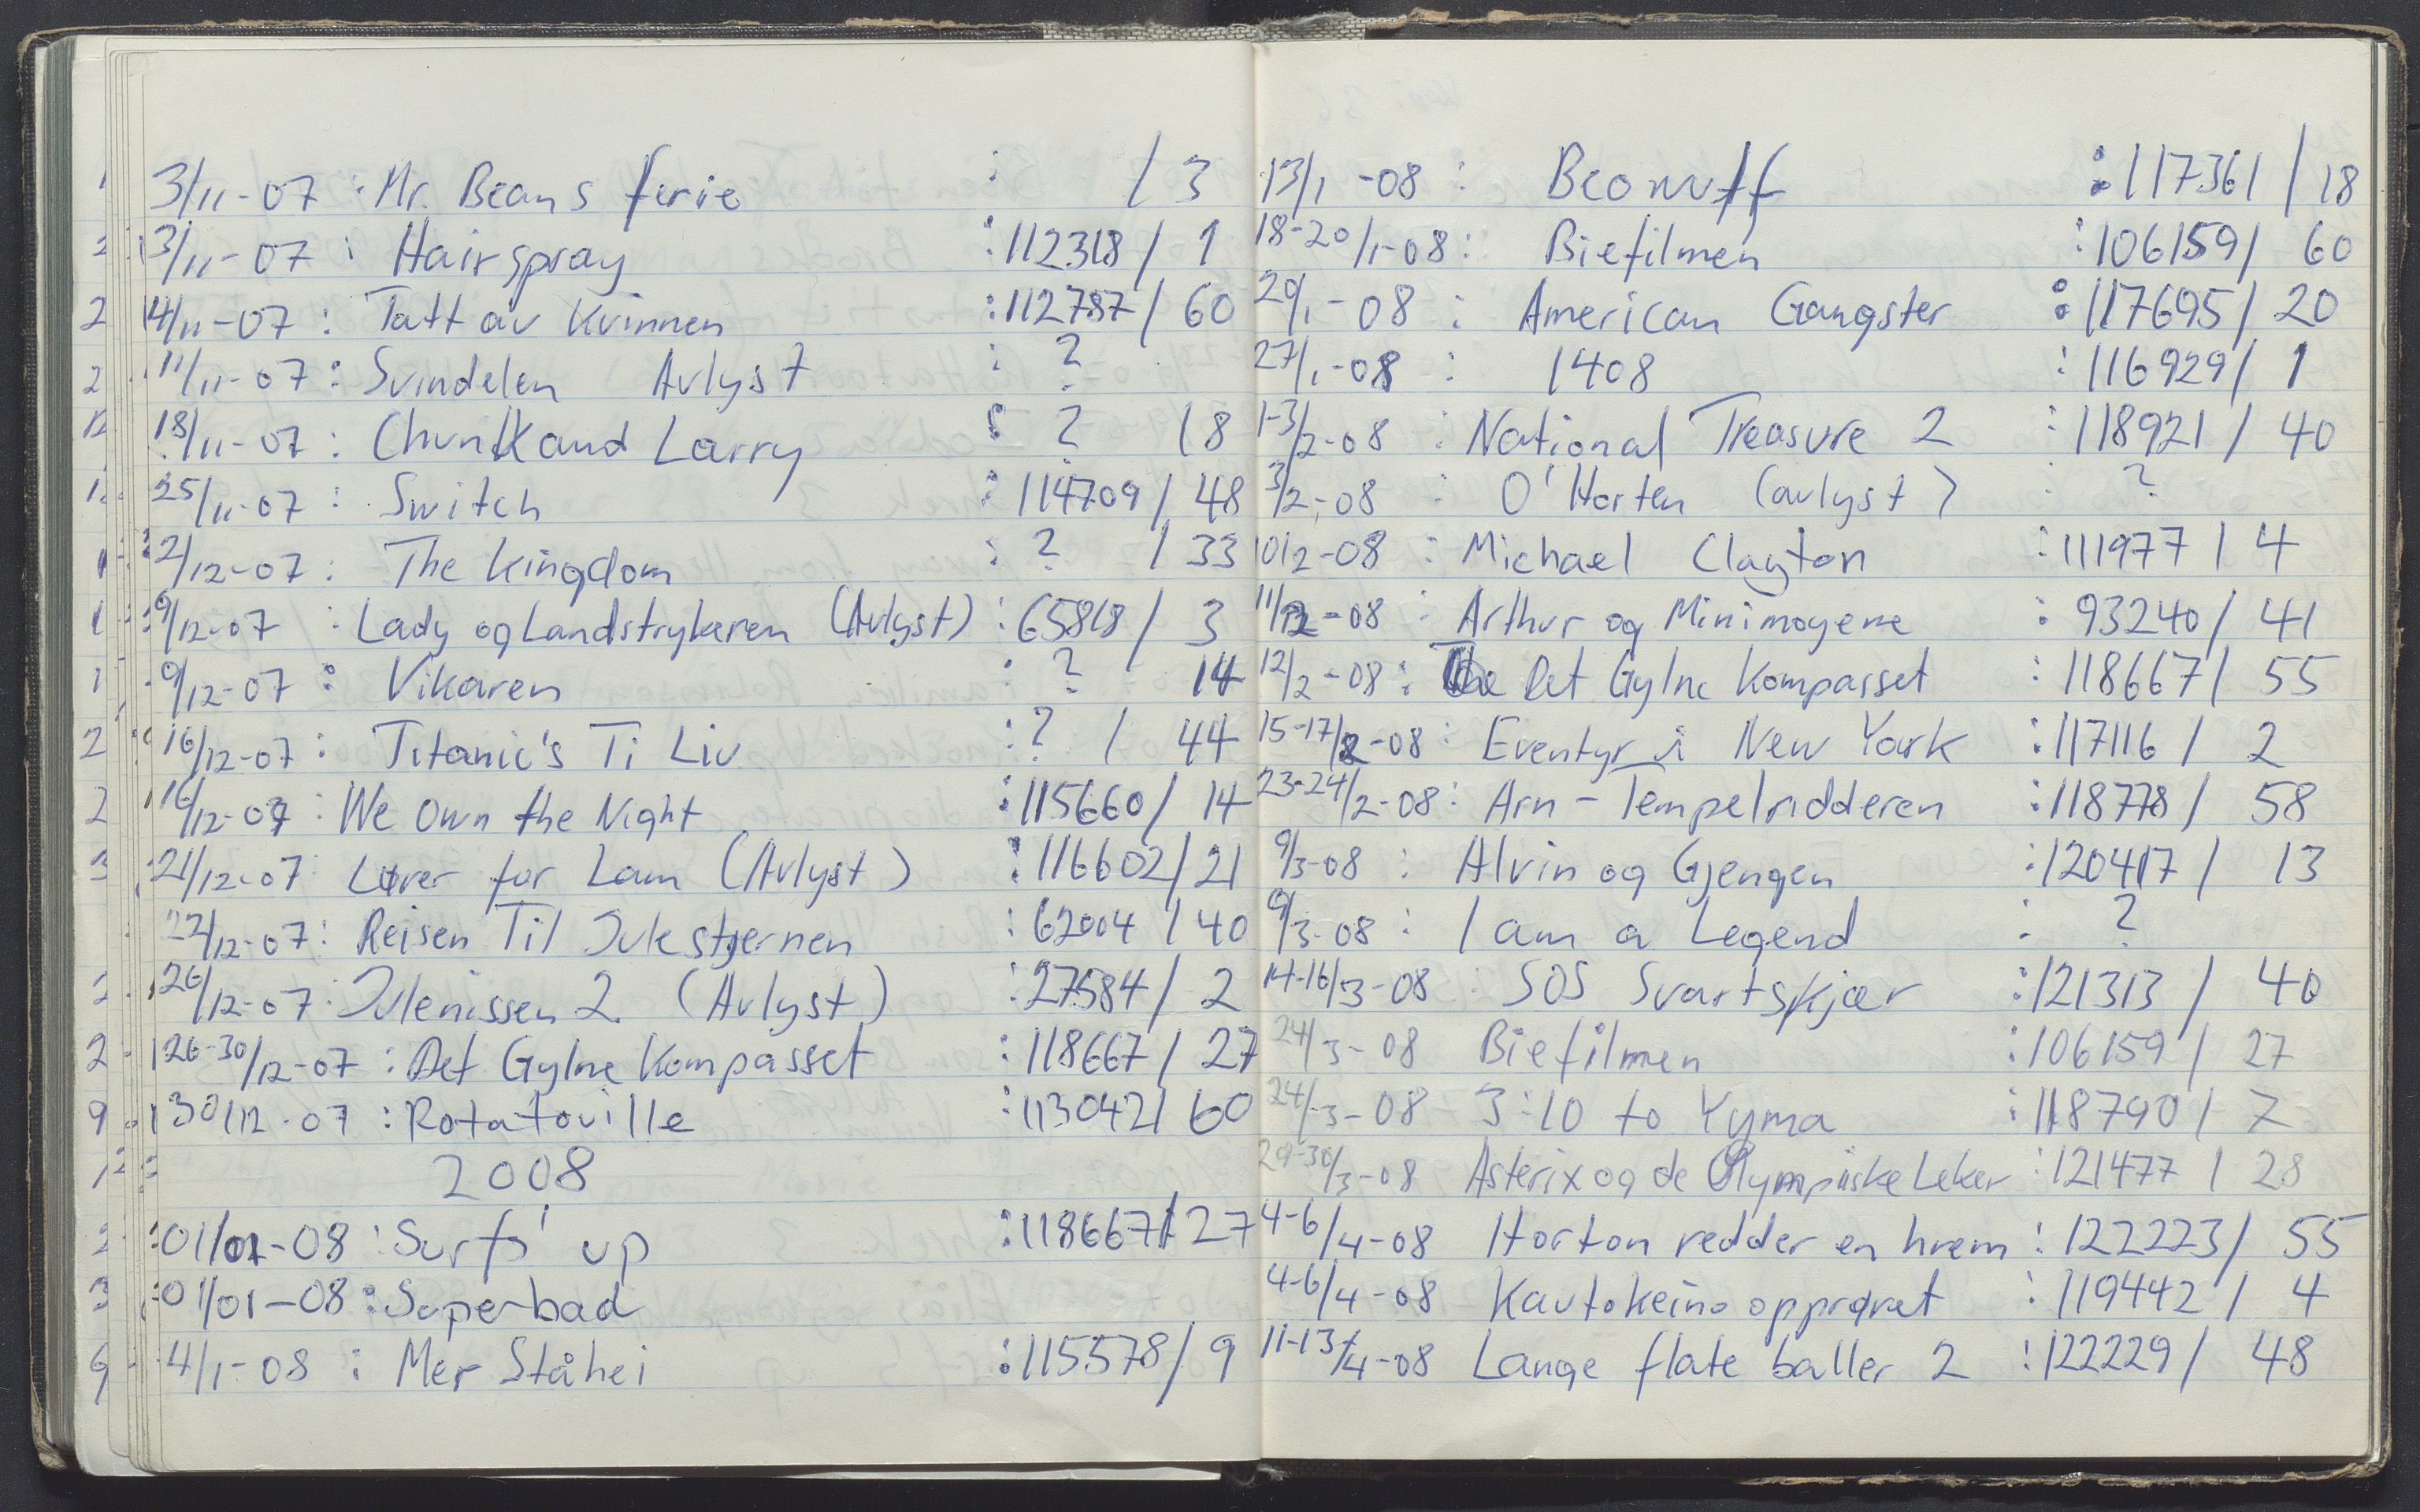 3/11-07 : Mr. Beans ferie : / 3
3/11-07 : Hairspray : 112318 / 1
14/11-07 : Tatt av Kvinnen : 112787 / 60
11/11-07 : Svindelen Avlyst : ?
18/11-07 : Chunk and Larry : ? / 8
25/11-07 : Switch : 114709 / 48
2/12-07 : The Kingdom : ? / 33
9/12-07 : Lady og Landstrykeren (Avlyst) : 65818 / 3
9/12-07 : Vikaren : ? 14
16/12-07 : Titanic's Ti Liv : ? / 44
16/12-07 : We Own the Night : 115660 / 14
21/12-07 Løver for Lam (Avlyst) : 116602 / 21
22/12-07 : Reisen Til Julestjernen : 62004 / 40
26/12-07 : Julenissen 2. (Avlyst) : 27584 / 2
26-30/12-07 : Det Gylne Kompasset : 118667 / 27
30/12-07 : Rotatouille : 113042 / 60
2008
01/01-08 : Surfs' up : 118667 / 27
01/01-08 : Superbad
4/1-08 : Mer Ståhei : 115578 / 9
13/1-08 : Beowulf : 117361 / 18
18-20/1-08 : Biefilmen : 106159 / 60
20/1-08 : American Gangster : 117695 / 20
27/1-08 : 1408 : 116929 / 1
1-3/2-08 : National Treasure 2 : 118921 / 40
3/2-08 : O'Horten (avlyst) : ?
10/2-08 : Michael Clayton : 111977 / 4
11/2-08 : Arthur og Minimoyene : 93240 / 41
12/2-08 : Det Gylne Kompasset : 118667 / 55
15-17/2-08 : Eventyr i New York : 117116 / 2
23-24/2-08 : Arn - Tempelridderen : 118778 / 58
9/3-08 : Alvin og Gjengen : 120417 / 13
9/3-08 : I am a Legend : ?
14-16/3-08 : SOS Svartskjær : 121313 / 40
24/3-08 Biefilmen : 106159 / 27
24/3-08 3:10 to Yyma : 118790 / 7
29-30/3-08 Asterix og de Olympiske Leker : 121477 / 28
4-6/4-08 Horton redder en hvem : 122223 / 55
4-6/4-08 Kautokeino opprøret : 119442 / 4
11-13/4-08 Lange flate baller 2 : 122229 / 48